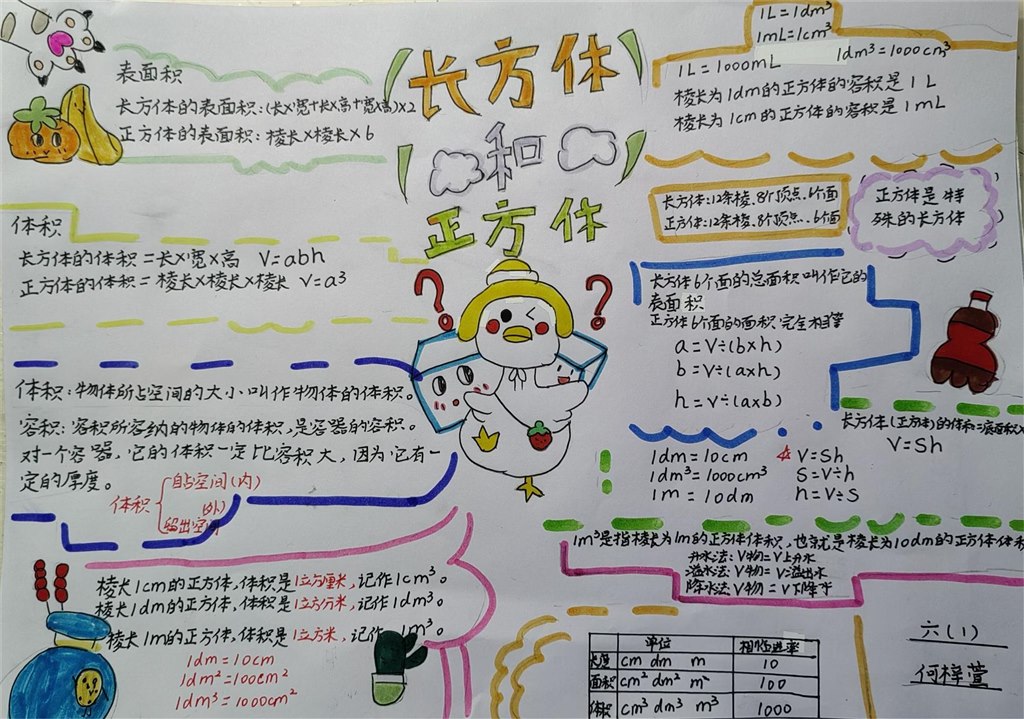 长方体
和
正方体
表面积
长方体的表面积:(长×宽+长×高+宽×高)×2
正方体的表面积:棱长×棱长×6
体积
长方体的体积=长×宽×高 V=abh
正方体的体积=棱长×棱长×棱长 V=a³
体积:物体所占空间的大小叫作物体的体积。
容积:容积所容纳的物体的体积,是容器的容积。
对一个容器,它的体积一定比容积大,因为它有一
定的厚度。
体积
自占空间(内)
(外)
留出空间
棱长1cm的正方体,体积是1立方厘米,记作1cm³。
棱长1dm的正方体,体积是1立方分米,记作1dm³。
棱长1m的正方体,体积是1立方米,记作1m³。
1dm=10cm
1dm²=100cm²
1dm³=1000cm²
1L=1dm³
1mL=1cm³
1L=1000mL 1dm³=1000cm³
棱长为1dm的正方体的容积是1L
棱长为1cm的正方体的容积是1mL
长方体:12条棱、8个顶点、6个面
正方体:12条棱、8个顶点、6个面
正方体是特
殊的长方体
长方体6个面的总面积叫作它的
表面积
正方体6个面的面积完全相等
a=V÷(b×h)
b=V÷(a×h)
h=V÷(a×b)
长方体(正方体)的体积=底面积×
V=Sh
1dm=10cm
1dm³=1000cm³
1m=10dm
V=Sh
S=V÷h
h=V÷S
1m³是指棱长为1m的正方体体积,也就是棱长为10dm的正方体体积
升水法:V物=V上升水
溢水法:V物=V溢出水
降水法:V物=V下降水
单位 相邻进率
长度 cm dm m 10
面积 cm² dm² m² 100
体积 cm³ dm³ m³ 1000
六(1)
何梓萱